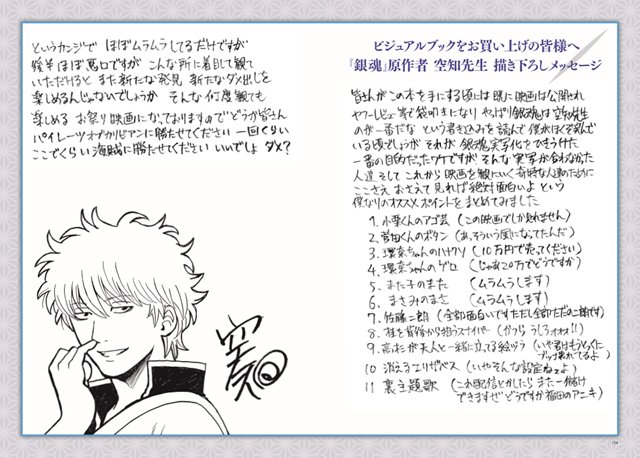 ビジュアルブックをお買い上げの皆様へ
『銀魂』原作者 空知先生 描き下ろしメッセージ
皆さんがこの本を手にする頃には既に映画は公開され
ヤフーレビュー等で袋叩きになり やっぱり銀魂は空知先生
のが一番だな という書き込みを読んで 僕がほくそ笑んで
いる頃でしょうが それが 銀魂実写化をひきうけた
一番の目的だったワケですが そんな実写が合わなかった
人達 そして これから映画を観にいく奇特な人達のために
ここさえ おさえて見れば絶対面白いよ という
僕なりのオススメポイントをまとめてみました
1. 小栗くんのアゴ芸 (この映画でしか見れません)
2. 菅田くんのボタン (あっそういう風になってたんだ)
3. 環奈ちゃんのハナクソ (10万円で売ってください)
4. 環奈ちゃんのゲロ (じゃあ20万でどうですか)
5. また子のまた (ムラムラします)
6. まさみのまさ (ムラムラします)
7. 佐藤二朗 (全部面白いですただし全部ただの二朗です)
8. 桂を背後から狙うスナイパー (かつら うしろォォォ!!)
9. 高杉が天人と一緒に立ってる絵ヅラ (いや君はもうとっくに
ブッ壊れてるよ)
10 消えるエリザベス (いやそんな設定ねェよ)
11 裏主題歌 (これ配信とかしたら また一儲け
できますぜ どうですか福田のアニキ)
というカンジで ほぼムラムラしてるだけですが
後半ほぼ悪口ですが こんな所に着目して観て
いただけると また新たな発見 新たなダメ出しを
楽しめるんじゃないでしょうか そんな何度観ても
楽しめる お祭り映画になっておりますのでどうか皆さん
パイレーツオブカリビアンに勝たせてください 一回くらい
ここでくらい 海賊に勝たせてください いいでしょ ダメ?
空知